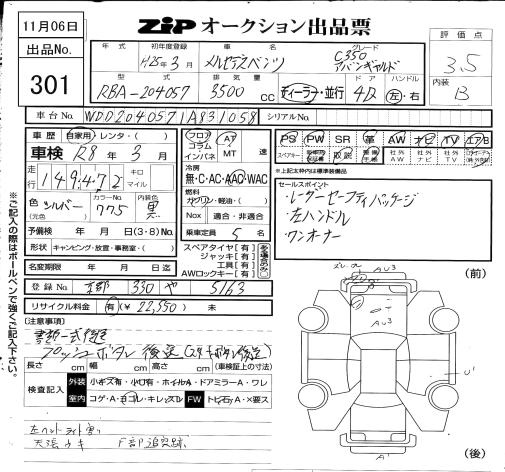 11月06日
ZiP オークション出品票
評価点
3.5
内装
B
出品No.
301
年式 初年度登録 車名 グレード
H25年3月 メルセデスベンツ C350 アバンギャルド
型式 排気量 ドア ハンドル
RBA-204057 3500 CC ディーラー・並行 4D 左・右
車台No. WDD2040571A831058 シリアルNo.
車歴 自家用・レンタ・( )
フロア コラム インパネ
AT MT 速
PS PW SR 革 AW ナビ TV エアB
車検 R8年3月
冷房 無・C・AC・AAC・WAC
走行 149,472 キロ マイル
燃料 ガソリン・軽油・( )
※上記太枠内は標準装備品
セールスポイント
・レーダーセーフティパッケージ
・左ハンドル
・ワンオーナー
色 シルバー (元色) カラーNo. 775 内装色 黒
Nox 適合・非適合
予備検 年 月 日(3・8)No.
乗車定員 5 名
形状 キャンピング・放置・事務室・( )
スペアタイヤ【有】
ジャッキ【有】
工具【有】
AWロックキー【有】
名変期限 年 月 日迄
登録No. 京都 330 や 5163
リサイクル料金 有(¥22,550) 未
(注意事項)
書類一式後送
プッシュボタン後送
長さ cm 幅 cm 高さ cm (車検証上の寸法)
検査記入 外装 小キズ有・小凹有・ホイルA・ドアミラーA・ワレ
室内 コゲ・A・ヨゴレ・キレ・スレ FW トビ石A・×要ス
左ヘッドライト
F部追突跡
(前)
AU3
AU3
U1
(後)
※ご記入の際はボールペンで強くご記入下さい。